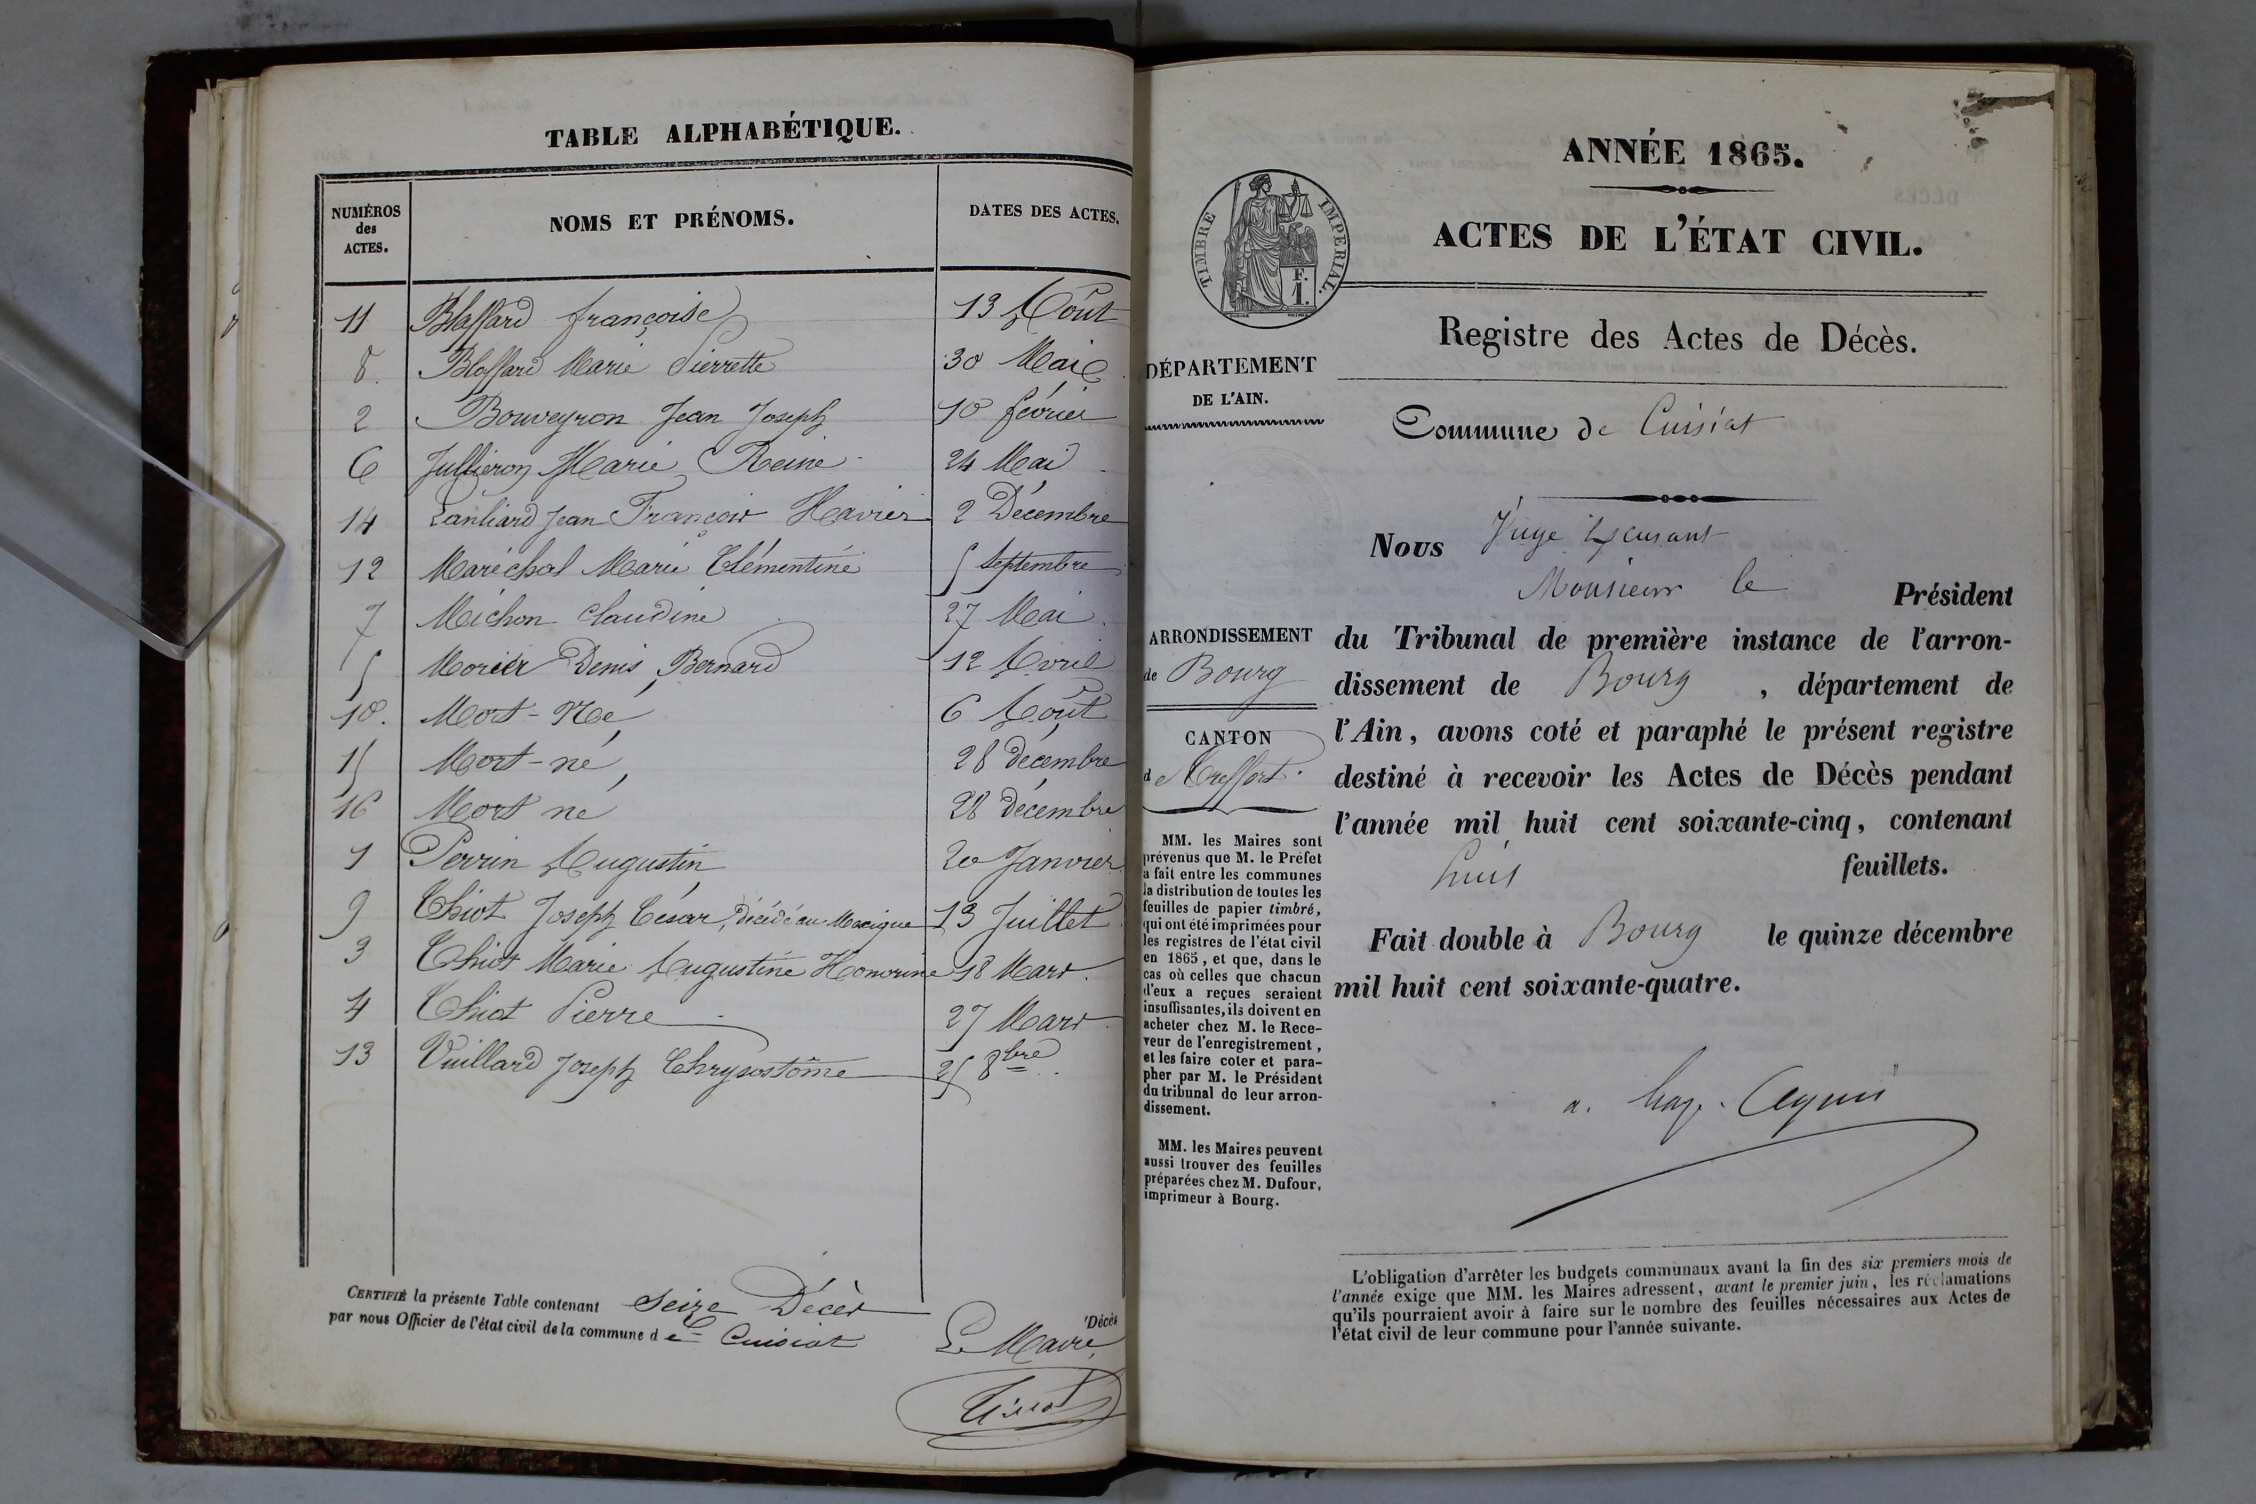 TABLE ALPHABÉTIQUE.
NUMÉROS des ACTES. NOMS ET PRÉNOMS. DATES DES ACTES.
11 Blaffard françoise 13 Août
8. Blaffard Marie Pierrette 30 Mai
2 Bouveyron Jean Joseph 10 février
6 Jullieron Marie Reine 24 Mai
14 Lanliard Jean François Xavier 2 Décembre
12 Maréchal Marie Clémentine 5 Septembre
7 Michon Claudine 27 Mai
5 Morier Denis Bernard 12 Avril
10. Mort-Né 6 Août
15 Mort-né 28 décembre
16 Mort né 28 Décembre
1 Perrin Augustin 20 Janvier
9 Chiot Joseph César, décédé au Mexique 13 Juillet
3 Chiot Marie Augustine Honorine 18 Mars.
4 Chiot Pierre 27 Mars
13 Vuillard Joseph Chrysostôme 25 8bre
CERTIFIÉ la présente Table contenant Seize Décès Décès
par nous Officier de l'état civil de la commune de Cuisiat Le Maire
ANNÉE 1865.
TIMBRE IMPERIAL.
F.
1.
ACTES DE L'ÉTAT CIVIL.
Registre des Actes de Décès.
DÉPARTEMENT
DE L'AIN.
Commune de Cuisiat
Nous Juge
Monsieur le Président
ARRONDISSEMENT
de Bourg
CANTON
de Treffort.
du Tribunal de première instance de l'arron-
dissement de Bourg, département de
l'Ain, avons coté et paraphé le présent registre
destiné à recevoir les Actes de Décès pendant
l'année mil huit cent soixante-cinq, contenant
huit feuillets.
Fait double à Bourg le quinze décembre
mil huit cent soixante-quatre.
MM. les Maires sont
prévenus que M. le Préfet
a fait entre les communes
la distribution de toutes les
feuilles de papier timbré,
qui ont été imprimées pour
les registres de l'état civil
en 1865, et que, dans le
cas où celles que chacun
d'eux a reçues seraient
insuffisantes, ils doivent en
acheter chez M. le Rece-
veur de l'enregistrement,
et les faire coter et para-
pher par M. le Président
du tribunal de leur arron-
dissement.
MM. les Maires peuvent
aussi trouver des feuilles
préparées chez M. Dufour,
imprimeur à Bourg.
L'obligation d'arrêter les budgets communaux avant la fin des six premiers mois de
l'année exige que MM. les Maires adressent, avant le premier juin, les réclamations
qu'ils pourraient avoir à faire sur le nombre des feuilles nécessaires aux Actes de
l'état civil de leur commune pour l'année suivante.